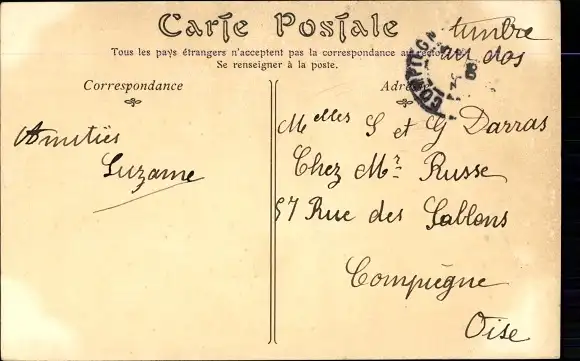 Carte Postale
timbre
au dos
Tous les pays étrangers n'acceptent pas la correspondance au recto
Se renseigner à la poste.
Correspondance
Amitiés
Suzanne
COMPIÈGN
Adresse
Melles S et G Darras
Chez Mr Russe
57 Rue des Sablons
Compiègne
Oise